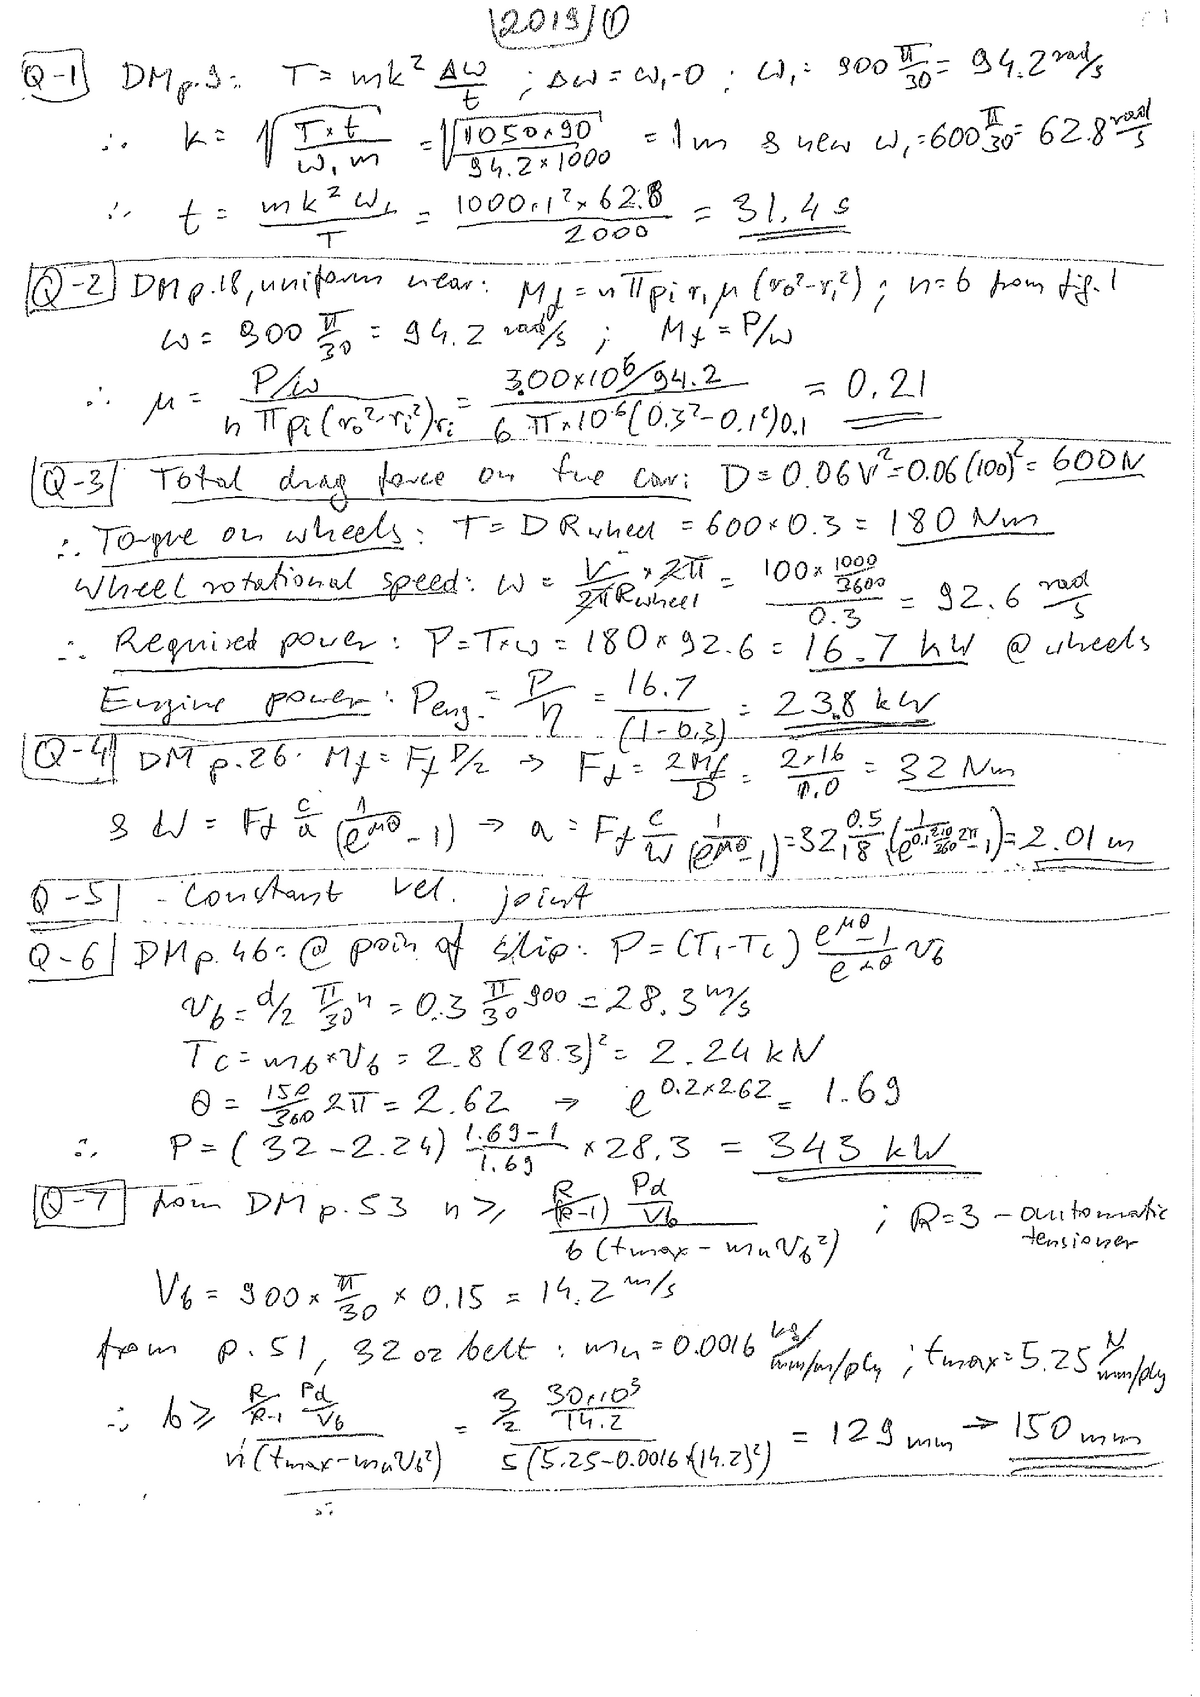 2019/①
Q-1 DM p.9: T = mk² Δω/t ; Δω = ω₁-0 ; ω₁ = 900 π/30 = 94.2 rad/s
∴ k = √(T×t / ω₁ m) = √(1050×90 / 94.2×1000) = 1m & new ω₁ = 600 π/30 = 62.8 rad/s
∴ t = mk² ω₁ / T = 1000×1²×62.8 / 2000 = 31.4 s
Q-2 DM p.18, uniform wear: M_f = nπ p_i r_i μ (r_o²-r_i²) ; n=6 from fig. 1
ω = 900 π/30 = 94.2 rad/s ; M_f = P/ω
∴ μ = P/ω / nπ p_i (r_o²-r_i²) r_i = 300×10⁶/94.2 / 6 π×10⁶ (0.3²-0.1²)0.1 = 0.21
Q-3 Total drag force on the car: D = 0.06V² = 0.06(100)² = 600N
∴ Torque on wheels: T = D Rwheel = 600×0.3 = 180 Nm
Wheel rotational speed: ω = V/2πRwheel × 2π = 100× 1000/3600 / 0.3 = 92.6 rad/s
∴ Required power: P = T×ω = 180×92.6 = 16.7 kW @ wheels
Engine power: Peng. = P/η = 16.7/(1-0.3) = 23.8 kW
Q-4 DM p.26. M_f = F_f D/2 ⇒ F_f = 2M_f/D = 2×16/1.0 = 32 Nm
& W = F_f c/a (1/e^μθ -1) → a = F_f c/W (1/e^μθ -1) = 32 0.5/18 (1/e^0.1 210/360 2π -1) = 2.01 m
Q-5 - Constant vel. joint
Q-6 DM p.46: @ poin of slip: P = (T₁-Tc) e^μθ-1/e^μθ V_b
V_b = d/2 π/30 n = 0.3 π/30 900 = 28.3 m/s
Tc = m_b×V_b = 2.8 (28.3)² = 2.24 kN
θ = 150/360 2π = 2.62 ⇒ e^0.2×2.62 = 1.69
∴ P = (32-2.24) 1.69-1/1.69 ×28.3 = 343 kW
Q-7 from DM p.53 n ≥ R/(R-1) Pd/V_b / b(tmax - m_u V_b²) ; R=3 - automatic tensioner
V_b = 900 × π/30 × 0.15 = 14.2 m/s
from p.51, 32 oz belt: m_u = 0.0016 kg/mm/m/ply ; tmax = 5.25 N/mm/ply
∴ b ≥ R/R-1 Pd/V_b / n(tmax-m_u V_b²) = 3/2 30×10³/14.2 / 5(5.25-0.0016×(14.2)²) = 129 mm → 150 mm